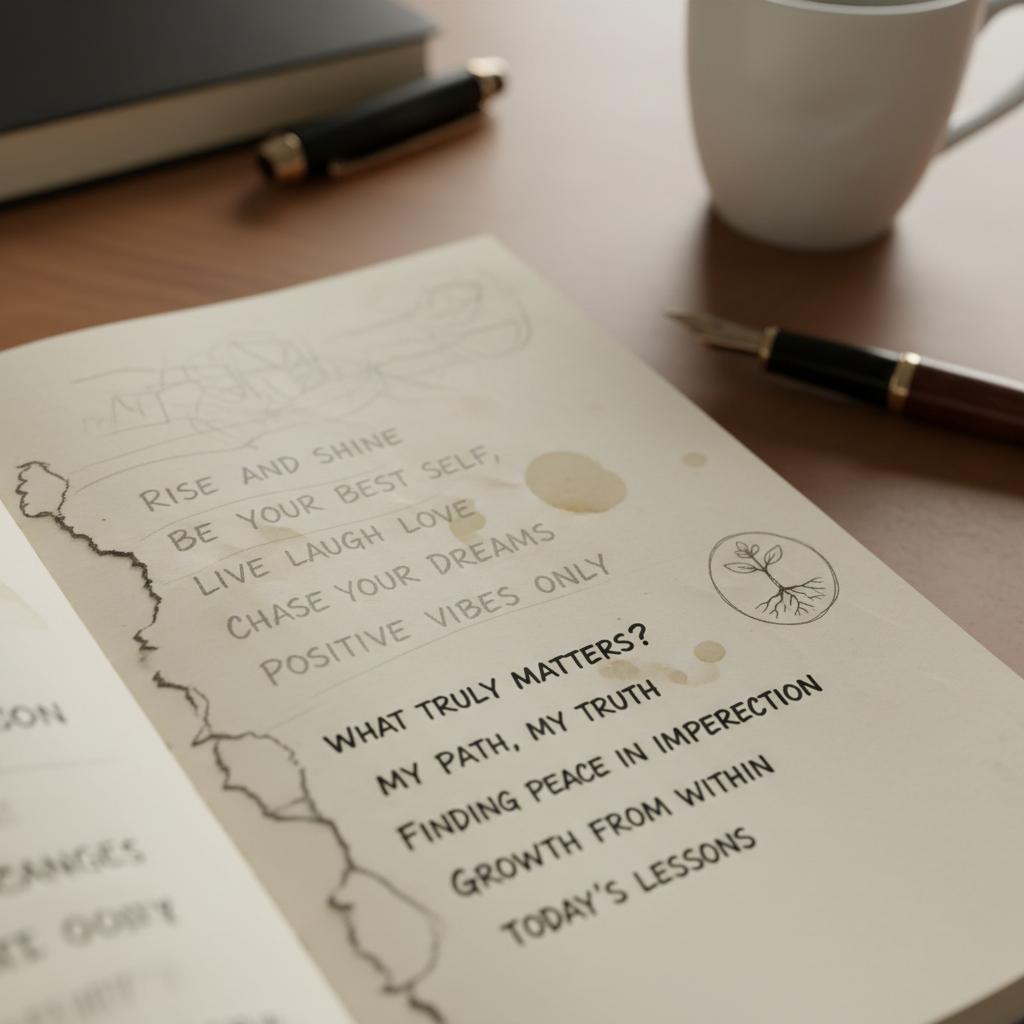 RISE AND SHINE
BE YOUR BEST SELF,
LIVE LAUGH LOVE
CHASE YOUR DREAMS
POSITIVE VIBES ONLY
WHAT TRULY MATTERS?
MY PATH, MY TRUTH
FINDING PEACE IN IMPERECTION
GROWTH FROM WITHIN
TODAY'S LESSONS